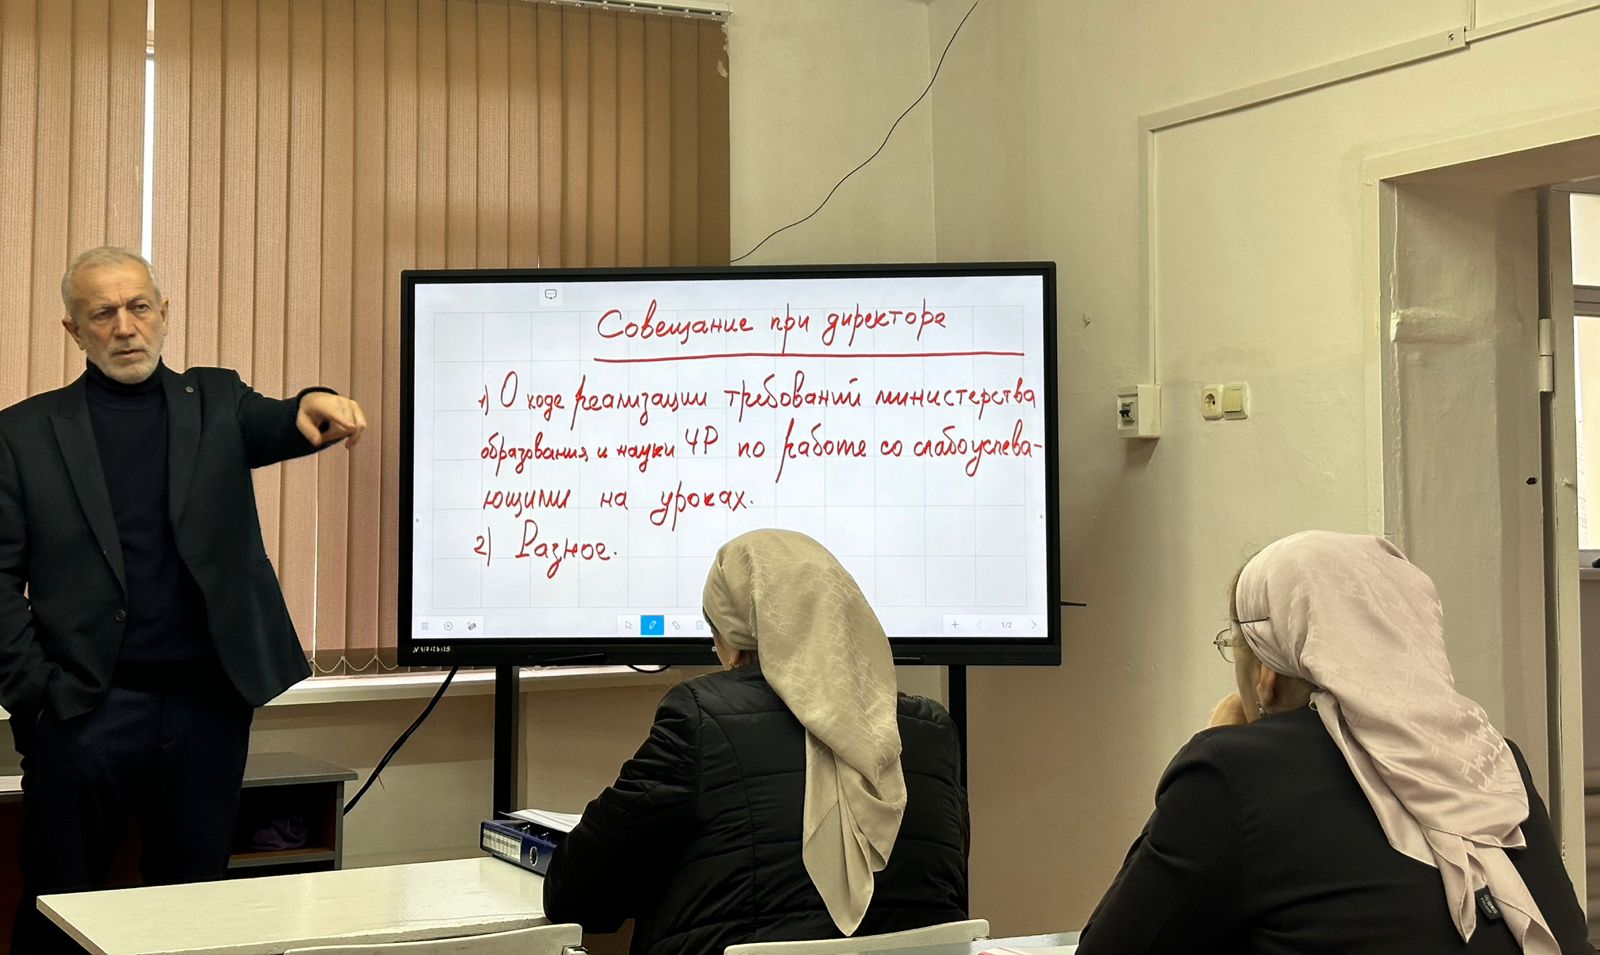 Совещание при директоре
1) О ходе реализации требований министерства
образования и науки ЧР по работе со слабоуспева-
ющими на уроках.
2) Разное.
1/2